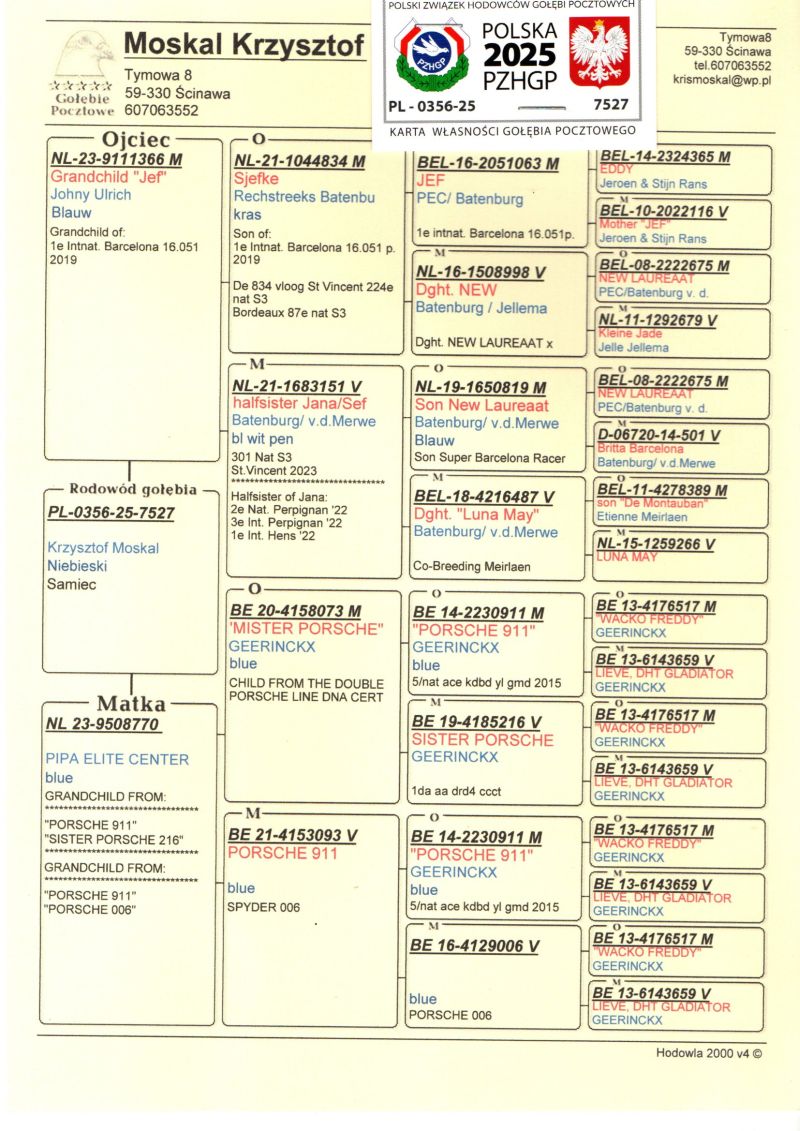 POLSKI ZWIĄZEK HODOWCÓW GOŁĘBI POCZTOWYCH
PZHGP
POLSKA
2025
PZHGP
PL - 0356-25
7527
KARTA WŁASNOŚCI GOŁĘBIA POCZTOWEGO
Gołębie
Pocztowe
Moskal Krzysztof
Tymowa 8
59-330 Ścinawa
607063552
Tymowa8
59-330 Ścinawa
tel.607063552
krismoskal@wp.pl
Ojciec
NL-23-9111366 M
Grandchild "Jef"
Johny Ulrich
Blauw
Grandchild of:
1e Intnat. Barcelona 16.051
2019
Rodowód gołębia
PL-0356-25-7527
Krzysztof Moskal
Niebieski
Samiec
Matka
NL 23-9508770
PIPA ELITE CENTER
blue
GRANDCHILD FROM:
************************************
"PORSCHE 911"
"SISTER PORSCHE 216"
************************************
GRANDCHILD FROM:
************************************
"PORSCHE 911"
"PORSCHE 006"
O
NL-21-1044834 M
Sjefke
Rechstreeks Batenbu
kras
Son of:
1e Intnat. Barcelona 16.051 p.
2019
De 834 vloog St Vincent 224e
nat S3
Bordeaux 87e nat S3
M
NL-21-1683151 V
halfsister Jana/Sef
Batenburg/ v.d.Merwe
bl wit pen
301 Nat S3
St.Vincent 2023
************************************
Halfsister of Jana:
2e Nat. Perpignan '22
3e Int. Perpignan '22
1e Int. Hens '22
O
BE 20-4158073 M
'MISTER PORSCHE"
GEERINCKX
blue
CHILD FROM THE DOUBLE
PORSCHE LINE DNA CERT
M
BE 21-4153093 V
PORSCHE 911
blue
SPYDER 006
BEL-16-2051063 M
JEF
PEC/ Batenburg
1e intnat. Barcelona 16.051p.
M
NL-16-1508998 V
Dght. NEW
Batenburg / Jellema
Dght. NEW LAUREAAT x
O
NL-19-1650819 M
Son New Laureaat
Batenburg/ v.d.Merwe
Blauw
Son Super Barcelona Racer
M
BEL-18-4216487 V
Dght. "Luna May"
Batenburg/ v.d.Merwe
Co-Breeding Meirlaen
O
BE 14-2230911 M
"PORSCHE 911"
GEERINCKX
blue
5/nat ace kdbd yl gmd 2015
M
BE 19-4185216 V
SISTER PORSCHE
GEERINCKX
1da aa drd4 ccct
O
BE 14-2230911 M
"PORSCHE 911"
GEERINCKX
blue
5/nat ace kdbd yl gmd 2015
M
BE 16-4129006 V
blue
PORSCHE 006
BEL-14-2324365 M
EDDY
Jeroen & Stijn Rans
M
BEL-10-2022116 V
Mother "JEF"
Jeroen & Stijn Rans
O
BEL-08-2222675 M
NEW LAUREAAT
PEC/Batenburg v. d.
M
NL-11-1292679 V
Kleine Jade
Jelle Jellema
O
BEL-08-2222675 M
NEW LAUREAAT
PEC/Batenburg v. d.
M
D-06720-14-501 V
Britta Barcelona
Batenburg/ v.d.Merwe
O
BEL-11-4278389 M
son "De Montauban"
Etienne Meirlaen
M
NL-15-1259266 V
LUNA MAY
O
BE 13-4176517 M
"WACKO FREDDY"
GEERINCKX
M
BE 13-6143659 V
LIEVE, DHT GLADIATOR
GEERINCKX
O
BE 13-4176517 M
"WACKO FREDDY"
GEERINCKX
M
BE 13-6143659 V
LIEVE, DHT GLADIATOR
GEERINCKX
O
BE 13-4176517 M
"WACKO FREDDY"
GEERINCKX
M
BE 13-6143659 V
LIEVE, DHT GLADIATOR
GEERINCKX
O
BE 13-4176517 M
"WACKO FREDDY"
GEERINCKX
M
BE 13-6143659 V
LIEVE, DHT GLADIATOR
GEERINCKX
Hodowla 2000 v4 ©